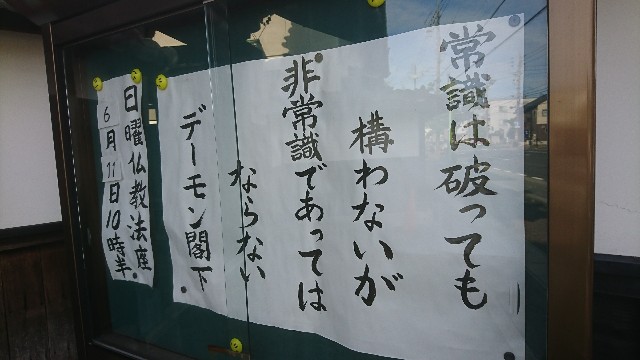 常識は破っても
構わないが
非常識であっては
ならない
デーモン閣下
日曜仏教法座
6月11日10時半